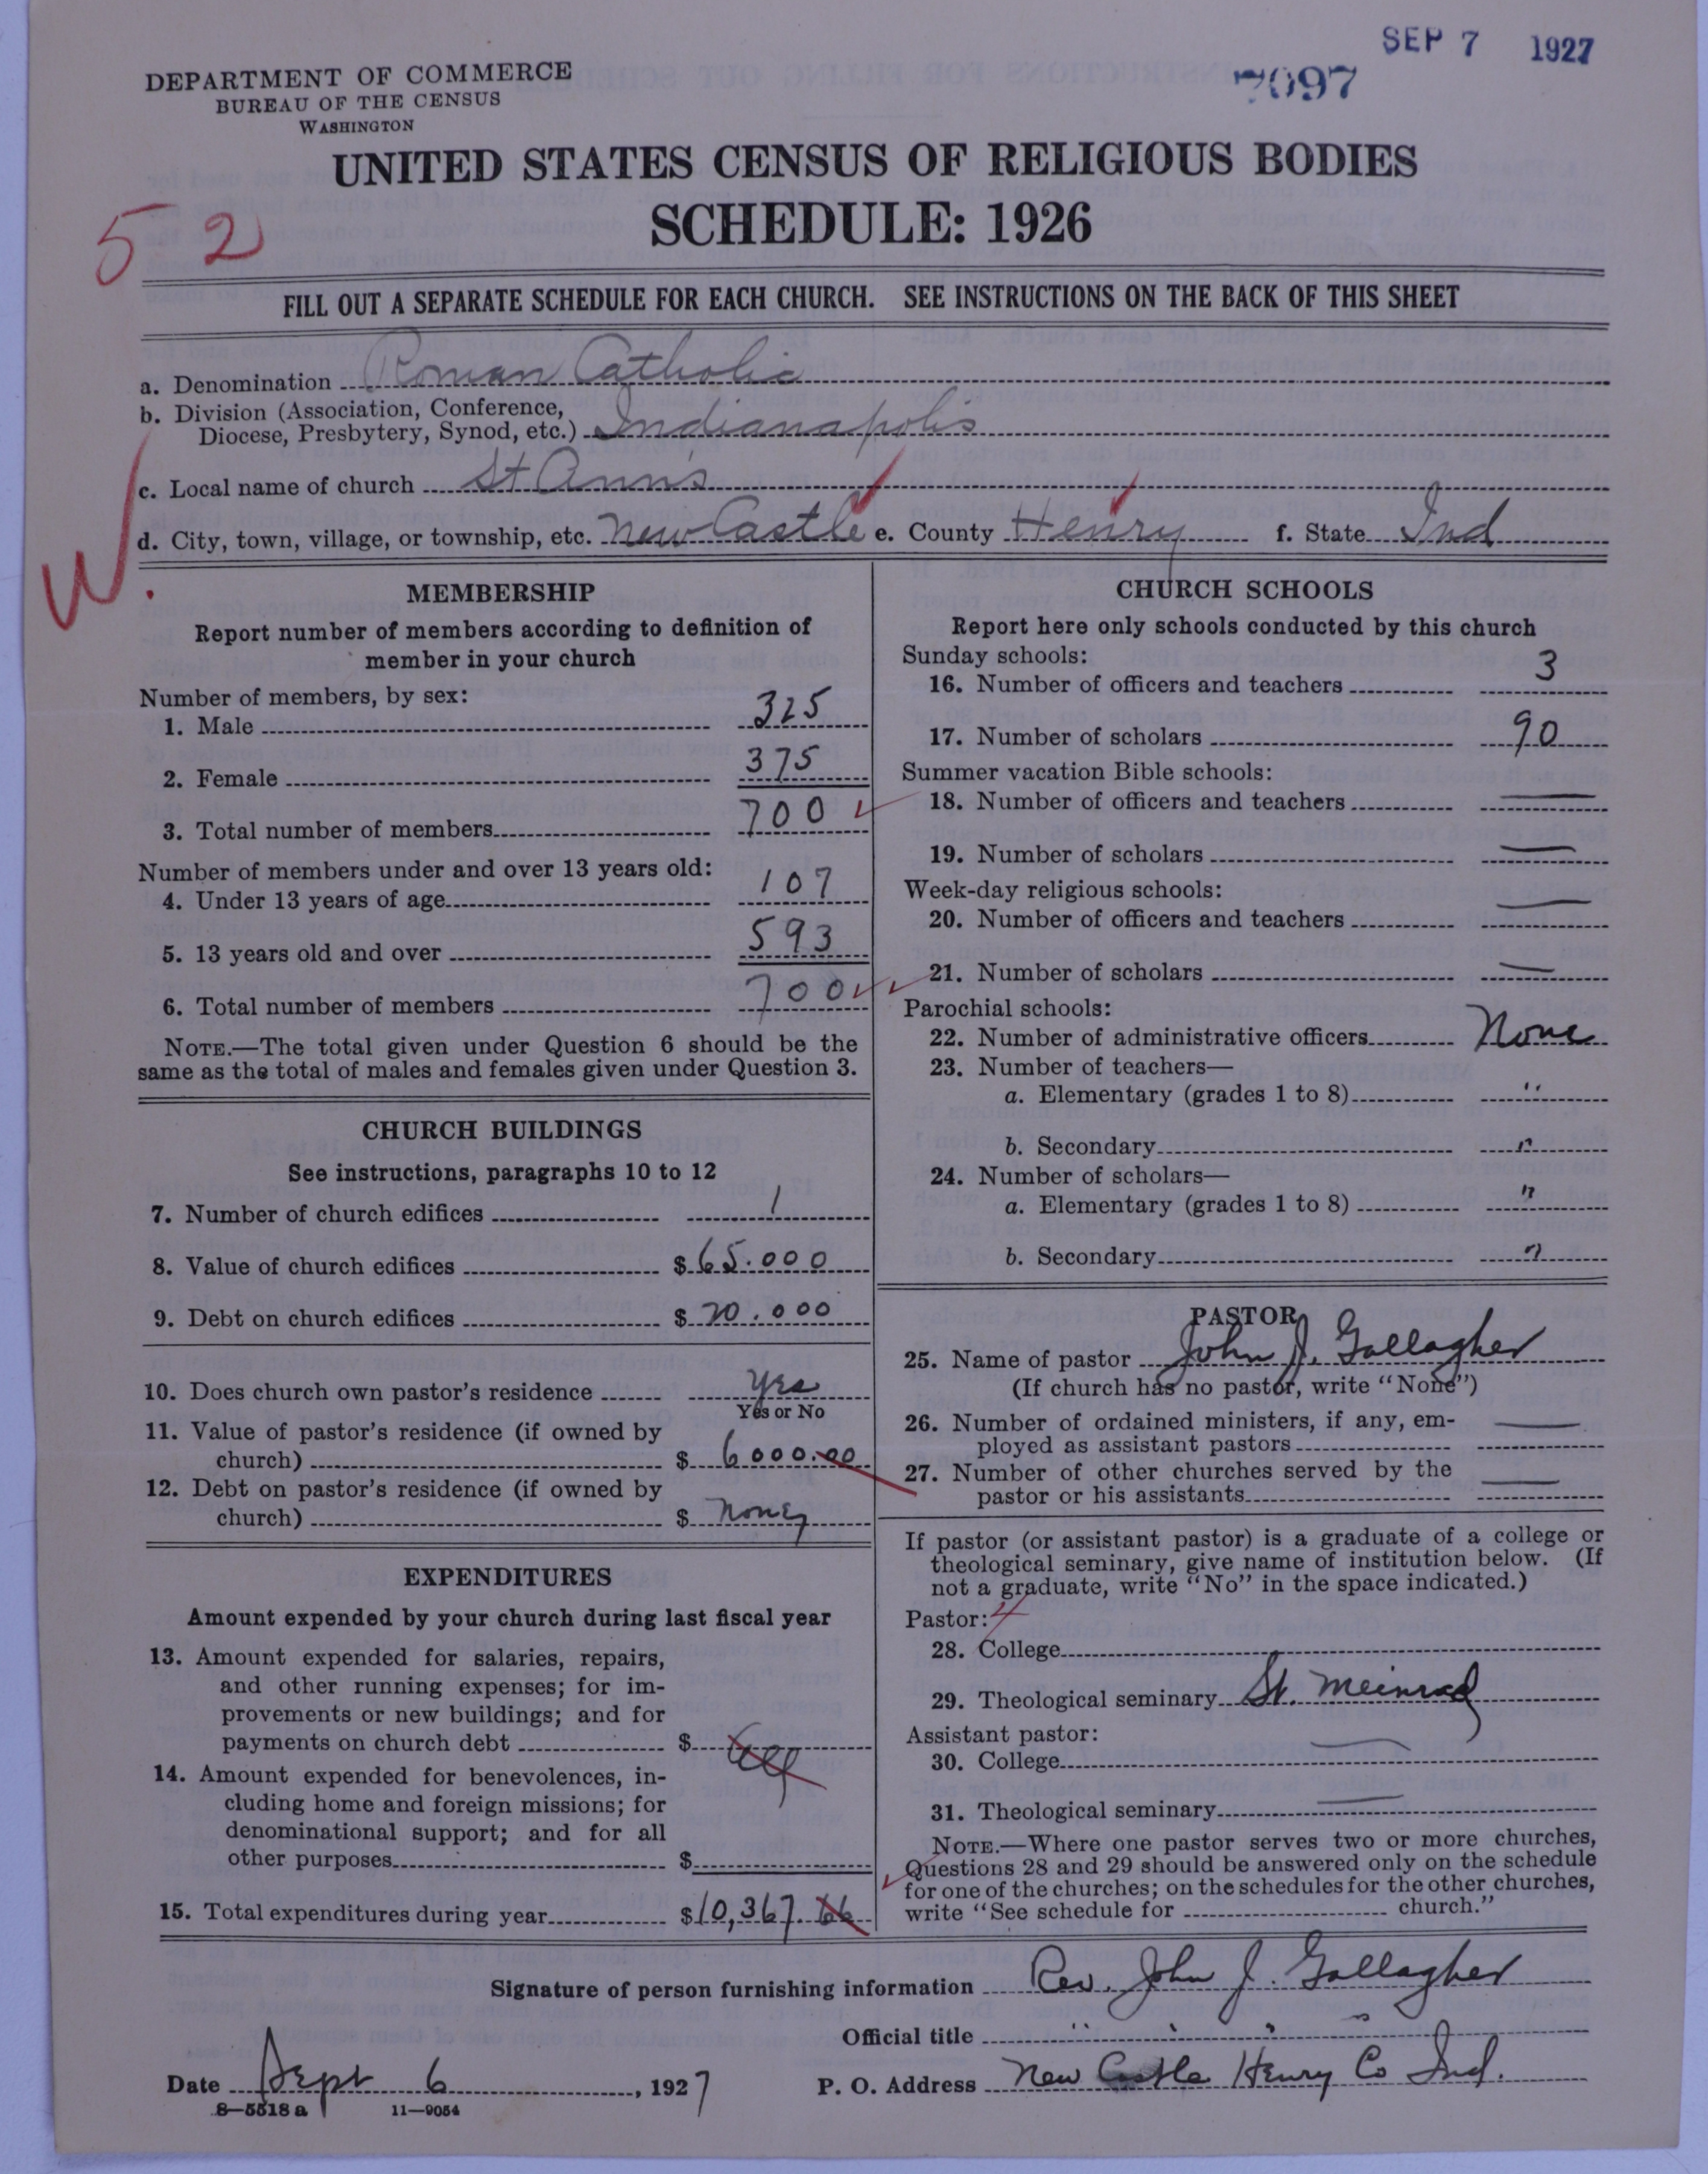 SEP 7 1927
7097
DEPARTMENT OF COMMERCE
BUREAU OF THE CENSUS
WASHINGTON
UNITED STATES CENSUS OF RELIGIOUS BODIES
SCHEDULE: 1926
52
FILL OUT A SEPARATE SCHEDULE FOR EACH CHURCH. SEE INSTRUCTIONS ON THE BACK OF THIS SHEET
a. Denomination Roman Catholic
b. Division (Association, Conference,
Diocese, Presbytery, Synod, etc.) Indianapolis
c. Local name of church St Ann's
d. City, town, village, or township, etc. New Castle e. County Henry f. State Ind
W.
MEMBERSHIP
Report number of members according to definition of
member in your church
Number of members, by sex:
1. Male 325
2. Female 375
3. Total number of members 700
Number of members under and over 13 years old:
4. Under 13 years of age 107
5. 13 years old and over 593
6. Total number of members 700
NOTE.—The total given under Question 6 should be the
same as the total of males and females given under Question 3.
CHURCH BUILDINGS
See instructions, paragraphs 10 to 12
7. Number of church edifices 1
8. Value of church edifices $65.000
9. Debt on church edifices $20.000
10. Does church own pastor's residence Yes
Yes or No
11. Value of pastor's residence (if owned by
church) $ 6000.00
12. Debt on pastor's residence (if owned by
church) $ None
EXPENDITURES
Amount expended by your church during last fiscal year
13. Amount expended for salaries, repairs,
and other running expenses; for im-
provements or new buildings; and for
payments on church debt $
14. Amount expended for benevolences, in-
cluding home and foreign missions; for
denominational support; and for all
other purposes $
15. Total expenditures during year $10,367.66
CHURCH SCHOOLS
Report here only schools conducted by this church
Sunday schools:
16. Number of officers and teachers 3
17. Number of scholars 90
Summer vacation Bible schools:
18. Number of officers and teachers —
19. Number of scholars —
Week-day religious schools:
20. Number of officers and teachers —
21. Number of scholars —
Parochial schools:
22. Number of administrative officers None
23. Number of teachers—
a. Elementary (grades 1 to 8) "
b. Secondary "
24. Number of scholars—
a. Elementary (grades 1 to 8) "
b. Secondary "
PASTOR
25. Name of pastor John J. Gallagher
(If church has no pastor, write "None")
26. Number of ordained ministers, if any, em-
ployed as assistant pastors —
27. Number of other churches served by the
pastor or his assistants —
If pastor (or assistant pastor) is a graduate of a college or
theological seminary, give name of institution below. (If
not a graduate, write "No" in the space indicated.)
Pastor: 4
28. College
29. Theological seminary St. Meinrad
Assistant pastor:
30. College —
31. Theological seminary —
NOTE.—Where one pastor serves two or more churches,
Questions 28 and 29 should be answered only on the schedule
for one of the churches; on the schedules for the other churches,
write "See schedule for church."
Signature of person furnishing information Rev. John J. Gallagher
Official title " " " "
Date Sept 6, 1927 P. O. Address New Castle Henry Co Ind.
8—5518 a 11—9054